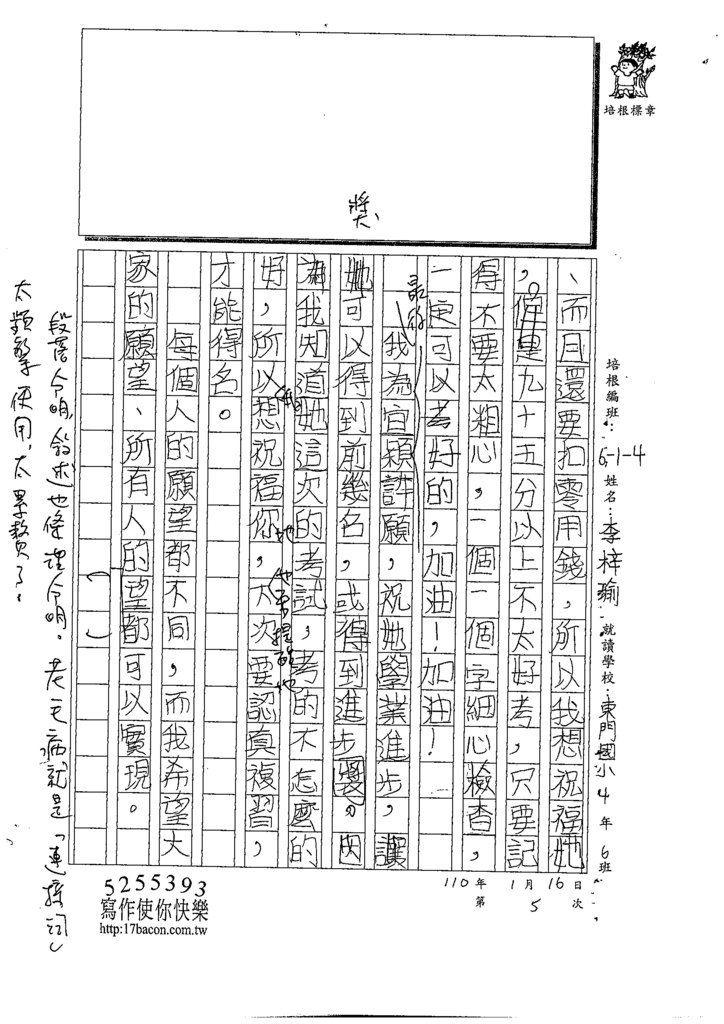 培根標章
獎
培根編班：6-1-4 姓名：李梓瑜 就讀學校：東門國小 4 年 6 班
110 年 1 月 16 日
第 5 次
、而且還要扣零用錢，所以我想祝福她
，但是九十五分以上不太好考，只要記
得不要太粗心，一個一個字細心檢查，
一定可以考好的，加油！加油！
最後
我為宜穎許願，祝她學業進步，讓
她可以得到前幾名，或得到進步獎。因
為我知道她這次的考試，考的不怎麼的
好，所以想祝福你，太次要認真複習，
她
提醒她
才能得名。
每個人的願望都不同，而我希望大
家的願望、所有人的望都可以實現。
段落分明，敘述也條理分明。老毛病就是「連接詞」
太頻繁使用，太累贅了。
5255393
寫作使你快樂
http:17bacon.com.tw